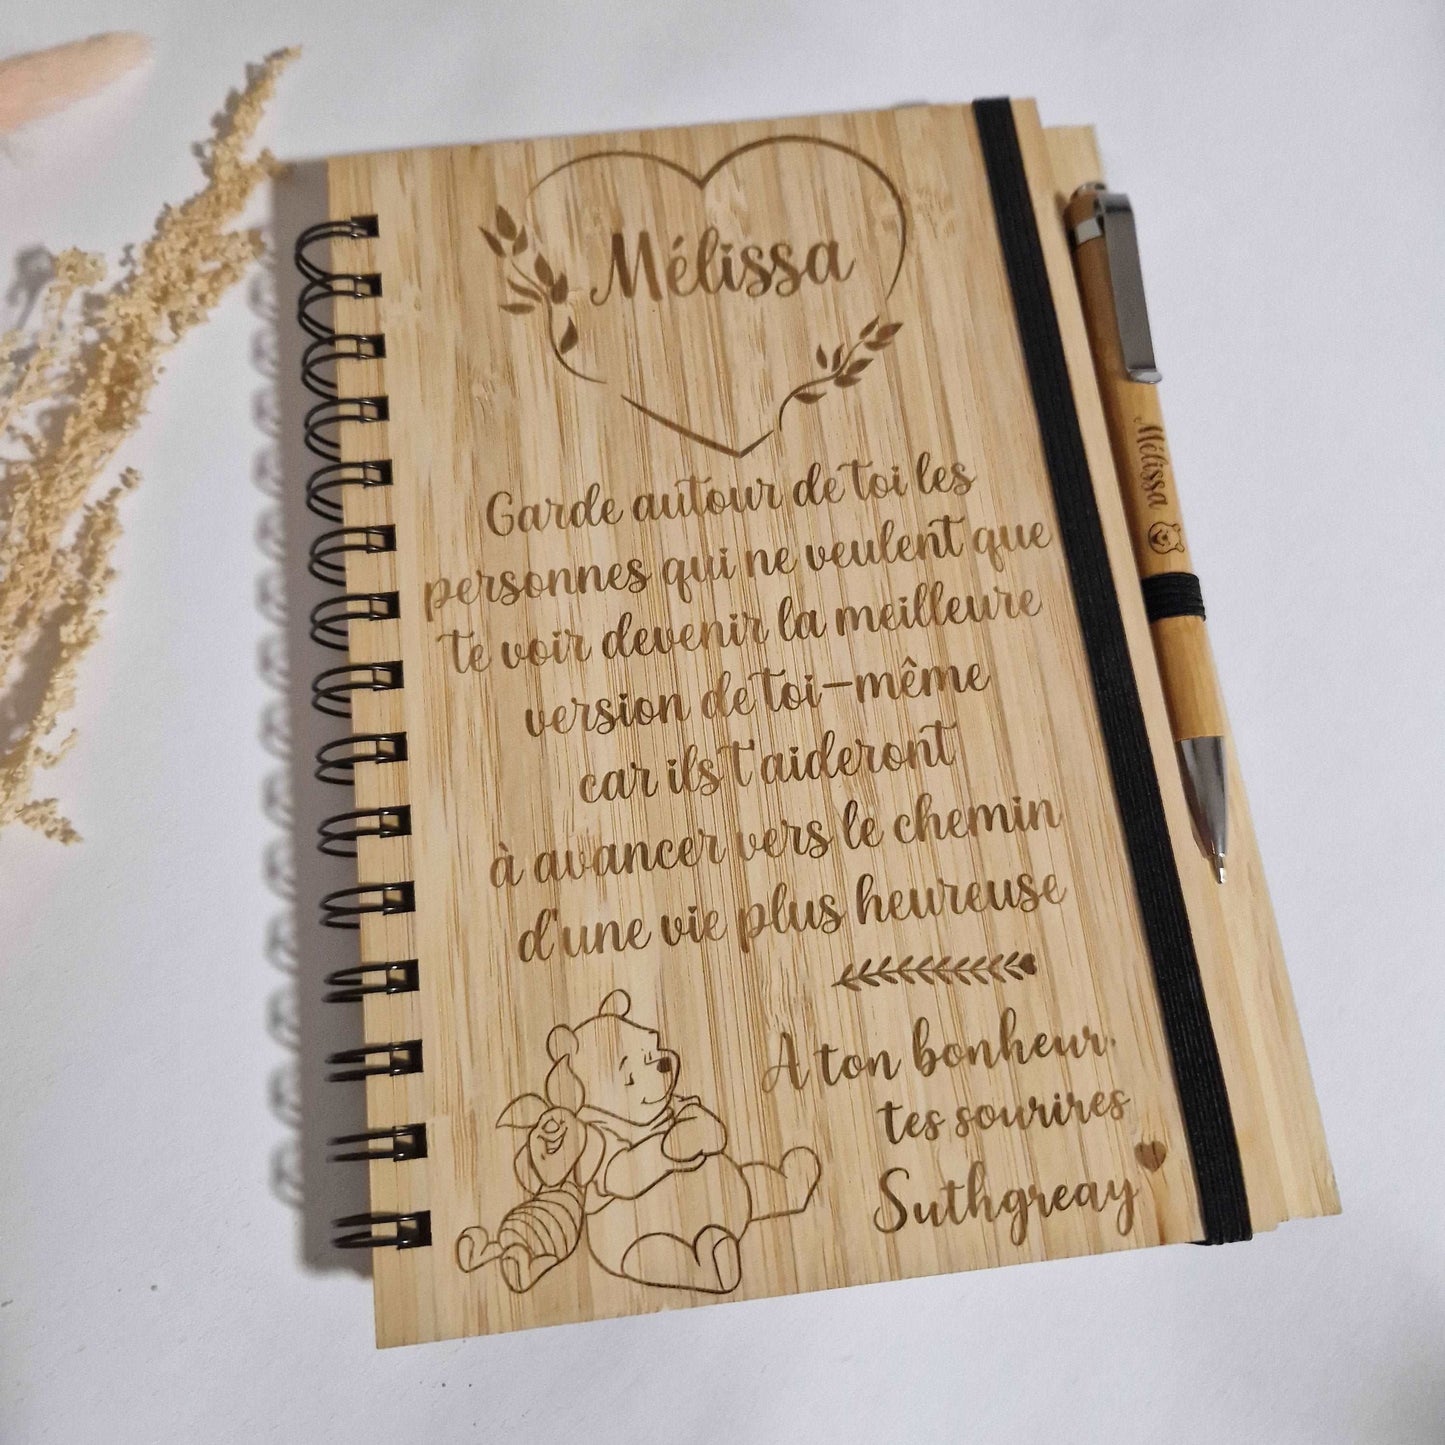 Mélissa
Garde autour de toi les
personnes qui ne veulent que
te voir devenir la meilleure
version de toi-même
car ils t'aideront
à avancer vers le chemin
d'une vie plus heureuse
A ton bonheur,
tes sourires
Suthgreay
Mélissa